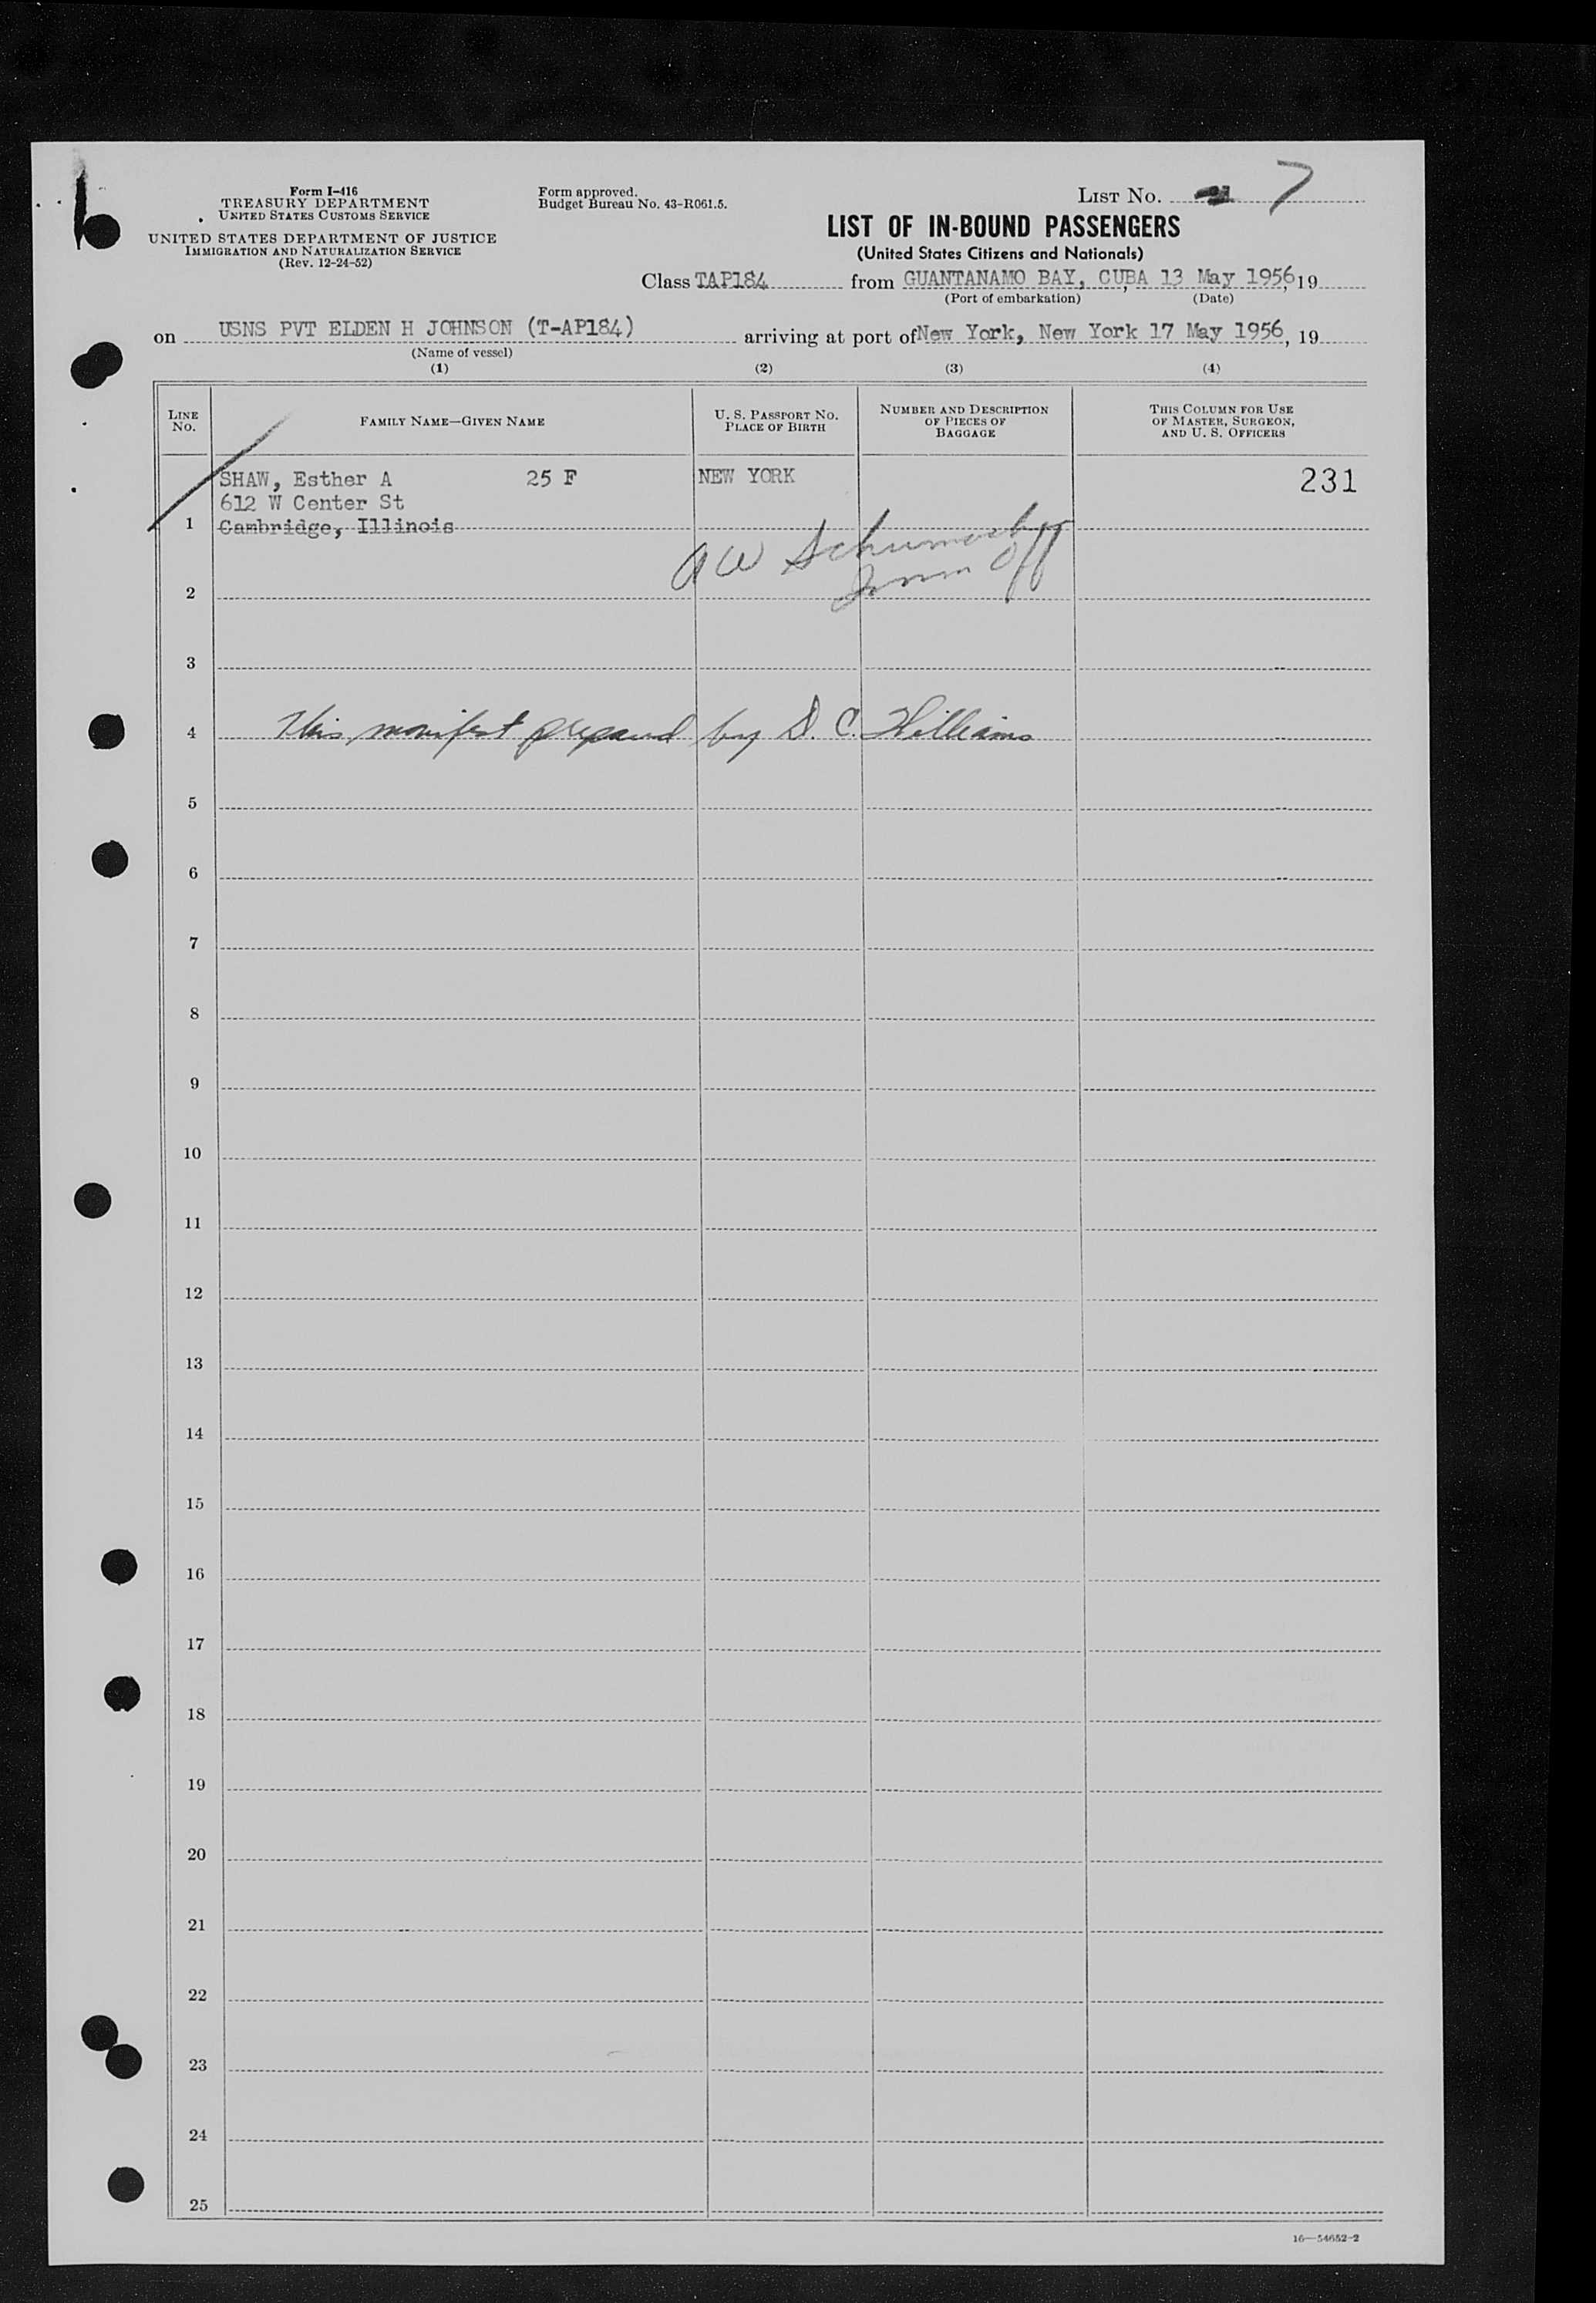 Form I-416
TREASURY DEPARTMENT
UNITED STATES CUSTOMS SERVICE
UNITED STATES DEPARTMENT OF JUSTICE
IMMIGRATION AND NATURALIZATION SERVICE
(Rev. 12-24-52)
Form approved.
Budget Bureau No. 43-R061.5.
LIST No. 7
LIST OF IN-BOUND PASSENGERS
(United States Citizens and Nationals)
Class TAP184 from GUANTANAMO BAY, CUBA, 13 May 1956, 19
(Port of embarkation) (Date)
on USNS PVT ELDEN H JOHNSON (T-AP184) arriving at port of New York, New York 17 May 1956, 19
(Name of vessel)
(1) (2) (3) (4)
LINE No.
FAMILY NAME—GIVEN NAME
U. S. PASSPORT NO. PLACE OF BIRTH
NUMBER AND DESCRIPTION OF PIECES OF BAGGAGE
THIS COLUMN FOR USE OF MASTER, SURGEON, AND U. S. OFFICERS
SHAW, Esther A 25 F NEW YORK 231
612 W Center St
1 Cambridge, Illinois
A W
Imm Off
2
3
4 This manifest prepared by D. C. Williams
5
6
7
8
9
10
11
12
13
14
15
16
17
18
19
20
21
22
23
24
25
16—54652-2